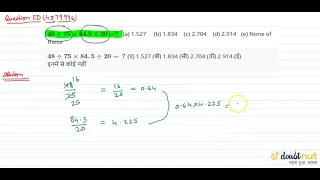 Question ID (4379996)
48 ÷ 75 × 84.5 ÷ 20 = ? (a) 1.527 (b) 1.834 (c) 2.704 (d) 2.914 (e) None of these
48 ÷ 75 × 84.5 ÷ 20 = ? (ए) 1.527 (बी) 1.834 (सी) 2.704 (डी) 2.914 (ई)
इनमें से कोई नहीं
Solution
16
48/75 = 16/25 = 0.64
25
0.64 × 4.225 =
84.5/20 = 4.225
doubtnut